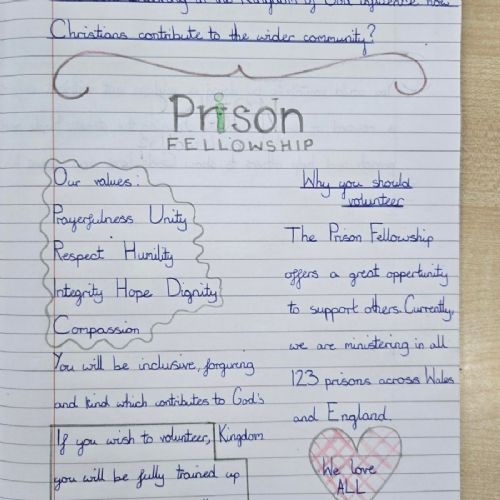 Kingdom of God influence how
Christians contribute to the wider community?
Prison
FELLOWSHIP
Our values:
Prayerfulness Unity
Respect Humility
Integrity Hope Dignity
Compassion
You will be inclusive, forgiving
and kind which contributes to God's
Kingdom
If you wish to volunteer,
you will be fully trained up
Why you should
volunteer
The Prison Fellowship
offers a great oppertunity
to support others. Currently,
we are ministering in all
123 prisons across Wales
and England.
We love
ALL